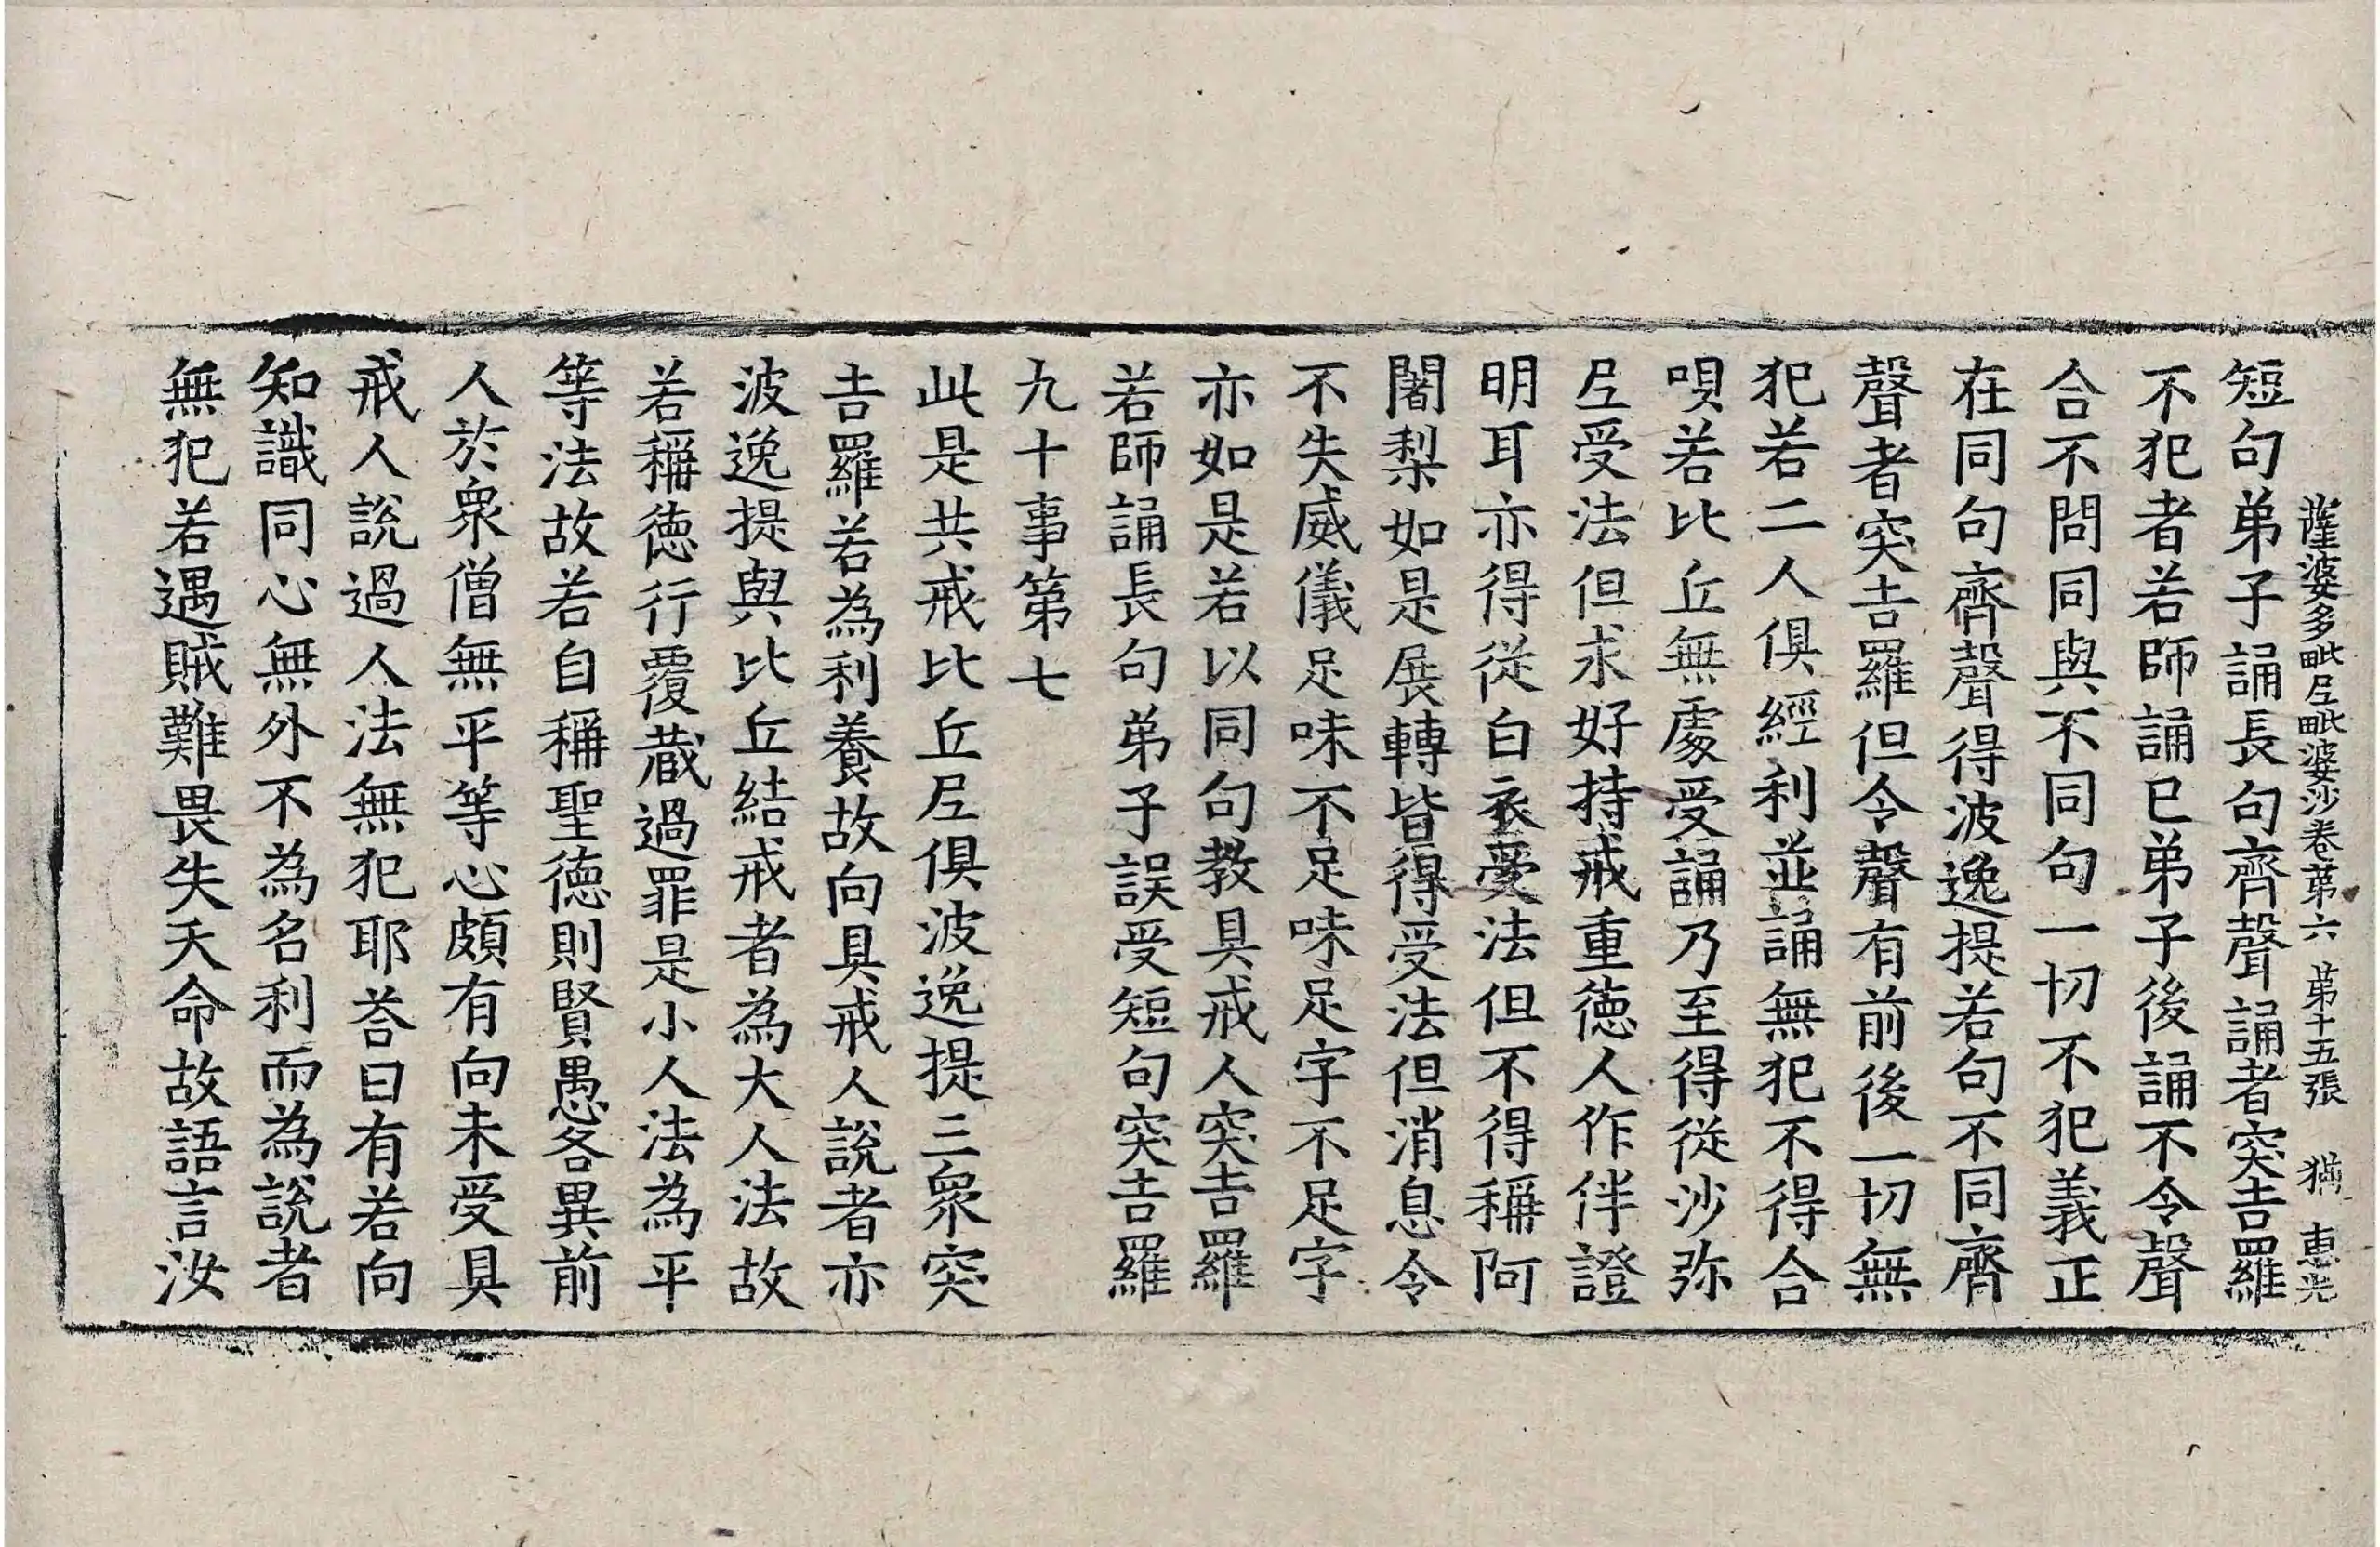 薩婆多毗尼毗婆沙卷第六 第十五張 猶 惠光
短句弟子誦長句齊聲誦者突吉羅
不犯者若師誦已弟子後誦不令聲
合不問同與不同句一切不犯義正
在同句齊聲得波逸提若句不同齊
聲者突吉羅但令聲有前後一切無
犯若二人俱經利並誦無犯不得合
唄若比丘無處受誦乃至得從沙弥
尼受法但求好持戒重德人作伴證
明耳亦得從白衣受法但不得稱阿
闍梨如是展轉皆得受法但消息令
不失威儀足味不足味足字不足字
亦如是若以同句教具戒人突吉羅
若師誦長句弟子誤受短句突吉羅
九十事第七
此是共戒比丘尼俱波逸提三衆突
吉羅若為利養故向具戒人說者亦
波逸提與比丘結戒者為大人法故
若稱德行覆藏過罪是小人法為平
等法故若自稱聖德則賢愚各異前
人於衆僧無平等心頗有向未受具
戒人說過人法無犯耶荅曰有若向
知識同心無外不為名利而為說者
無犯若遇賊難畏失夭命故語言汝